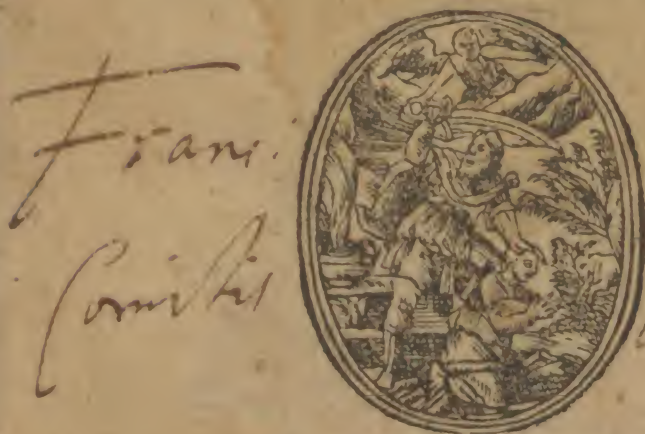 Franc.
Comitis